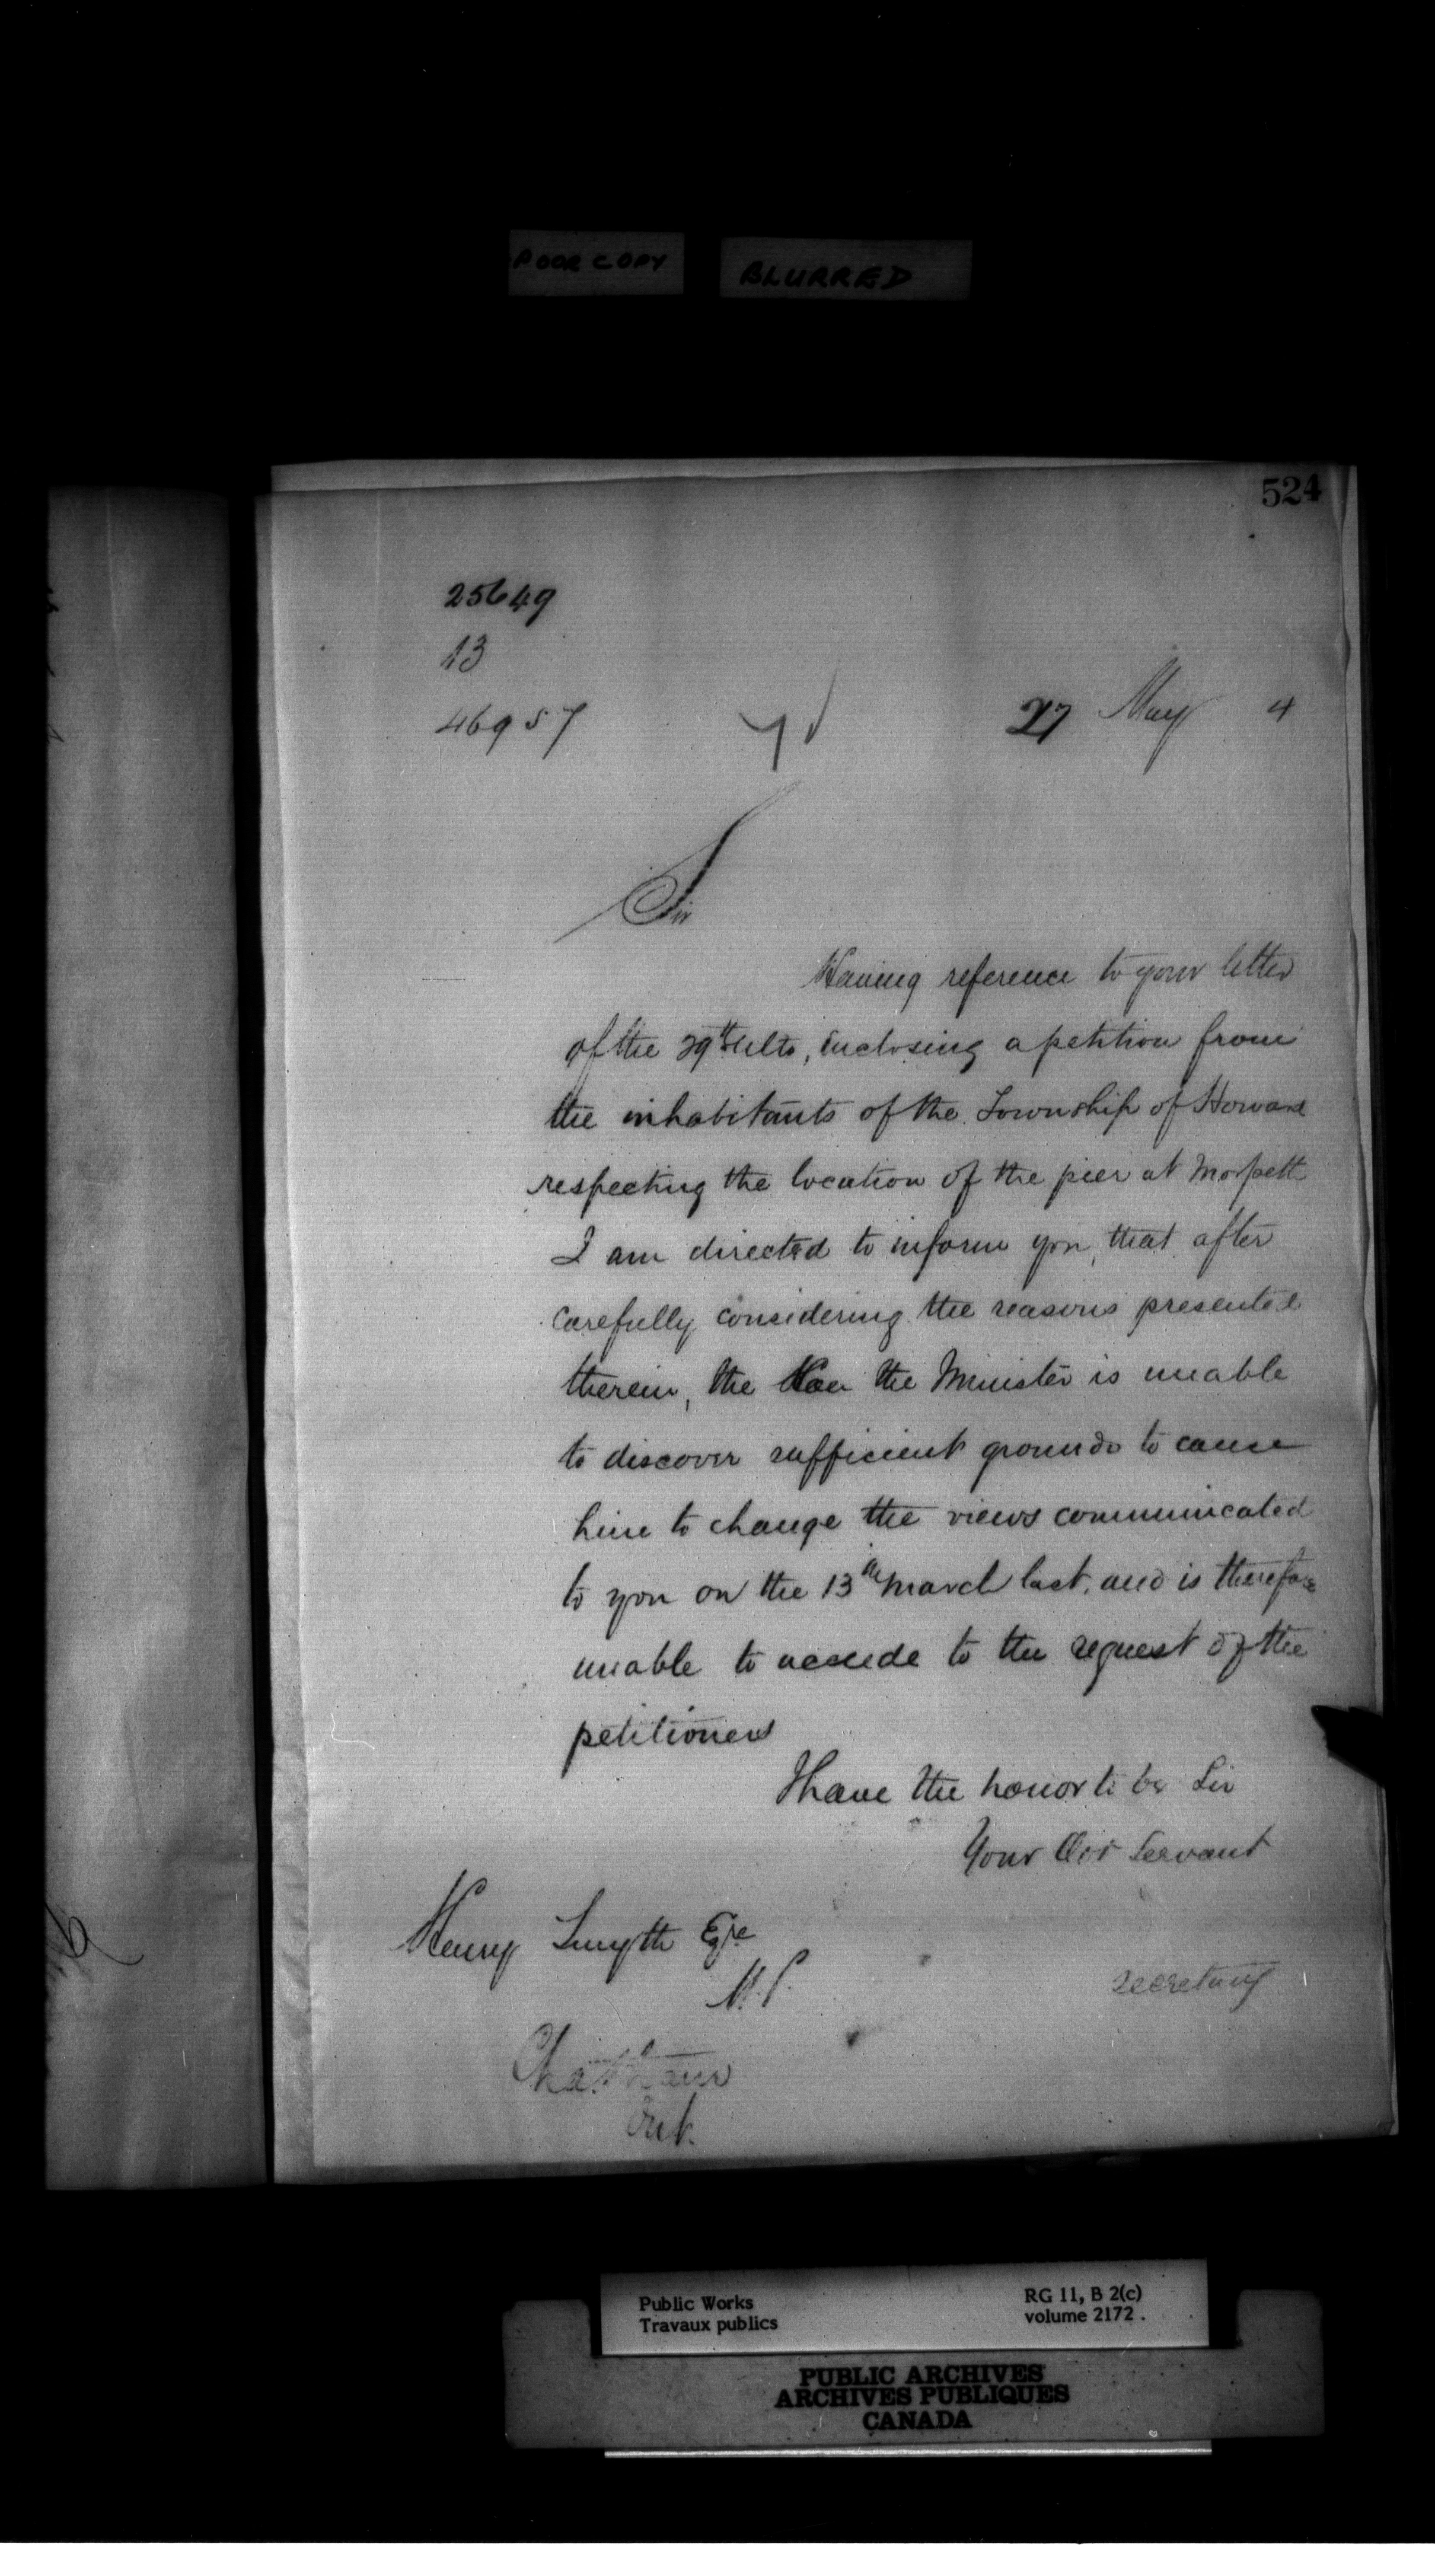 POOR COPY BLURRED
524
25649
13
46957
27 May 4
Sir
Having reference to your letter
of the 29th Ulto, inclosing a petition from
the inhabitants of the Township of Howard
respecting the location of the pier at Morpeth
I am directed to inform you, that after
carefully considering the reasons presented
therein, the Hon the Minister is unable
to discover sufficient grounds to cause
him to change the views communicated
to you on the 13th March last, and is therefore
unable to accede to the request of the
petitioners
I have the honor to be Sir
Your Obt Servant
Henry Smyth Eqre
M.P.
secretary
Chatham
Ont.
Public Works
Travaux publics
RG 11, B 2(c)
volume 2172.
PUBLIC ARCHIVES
ARCHIVES PUBLIQUES
CANADA